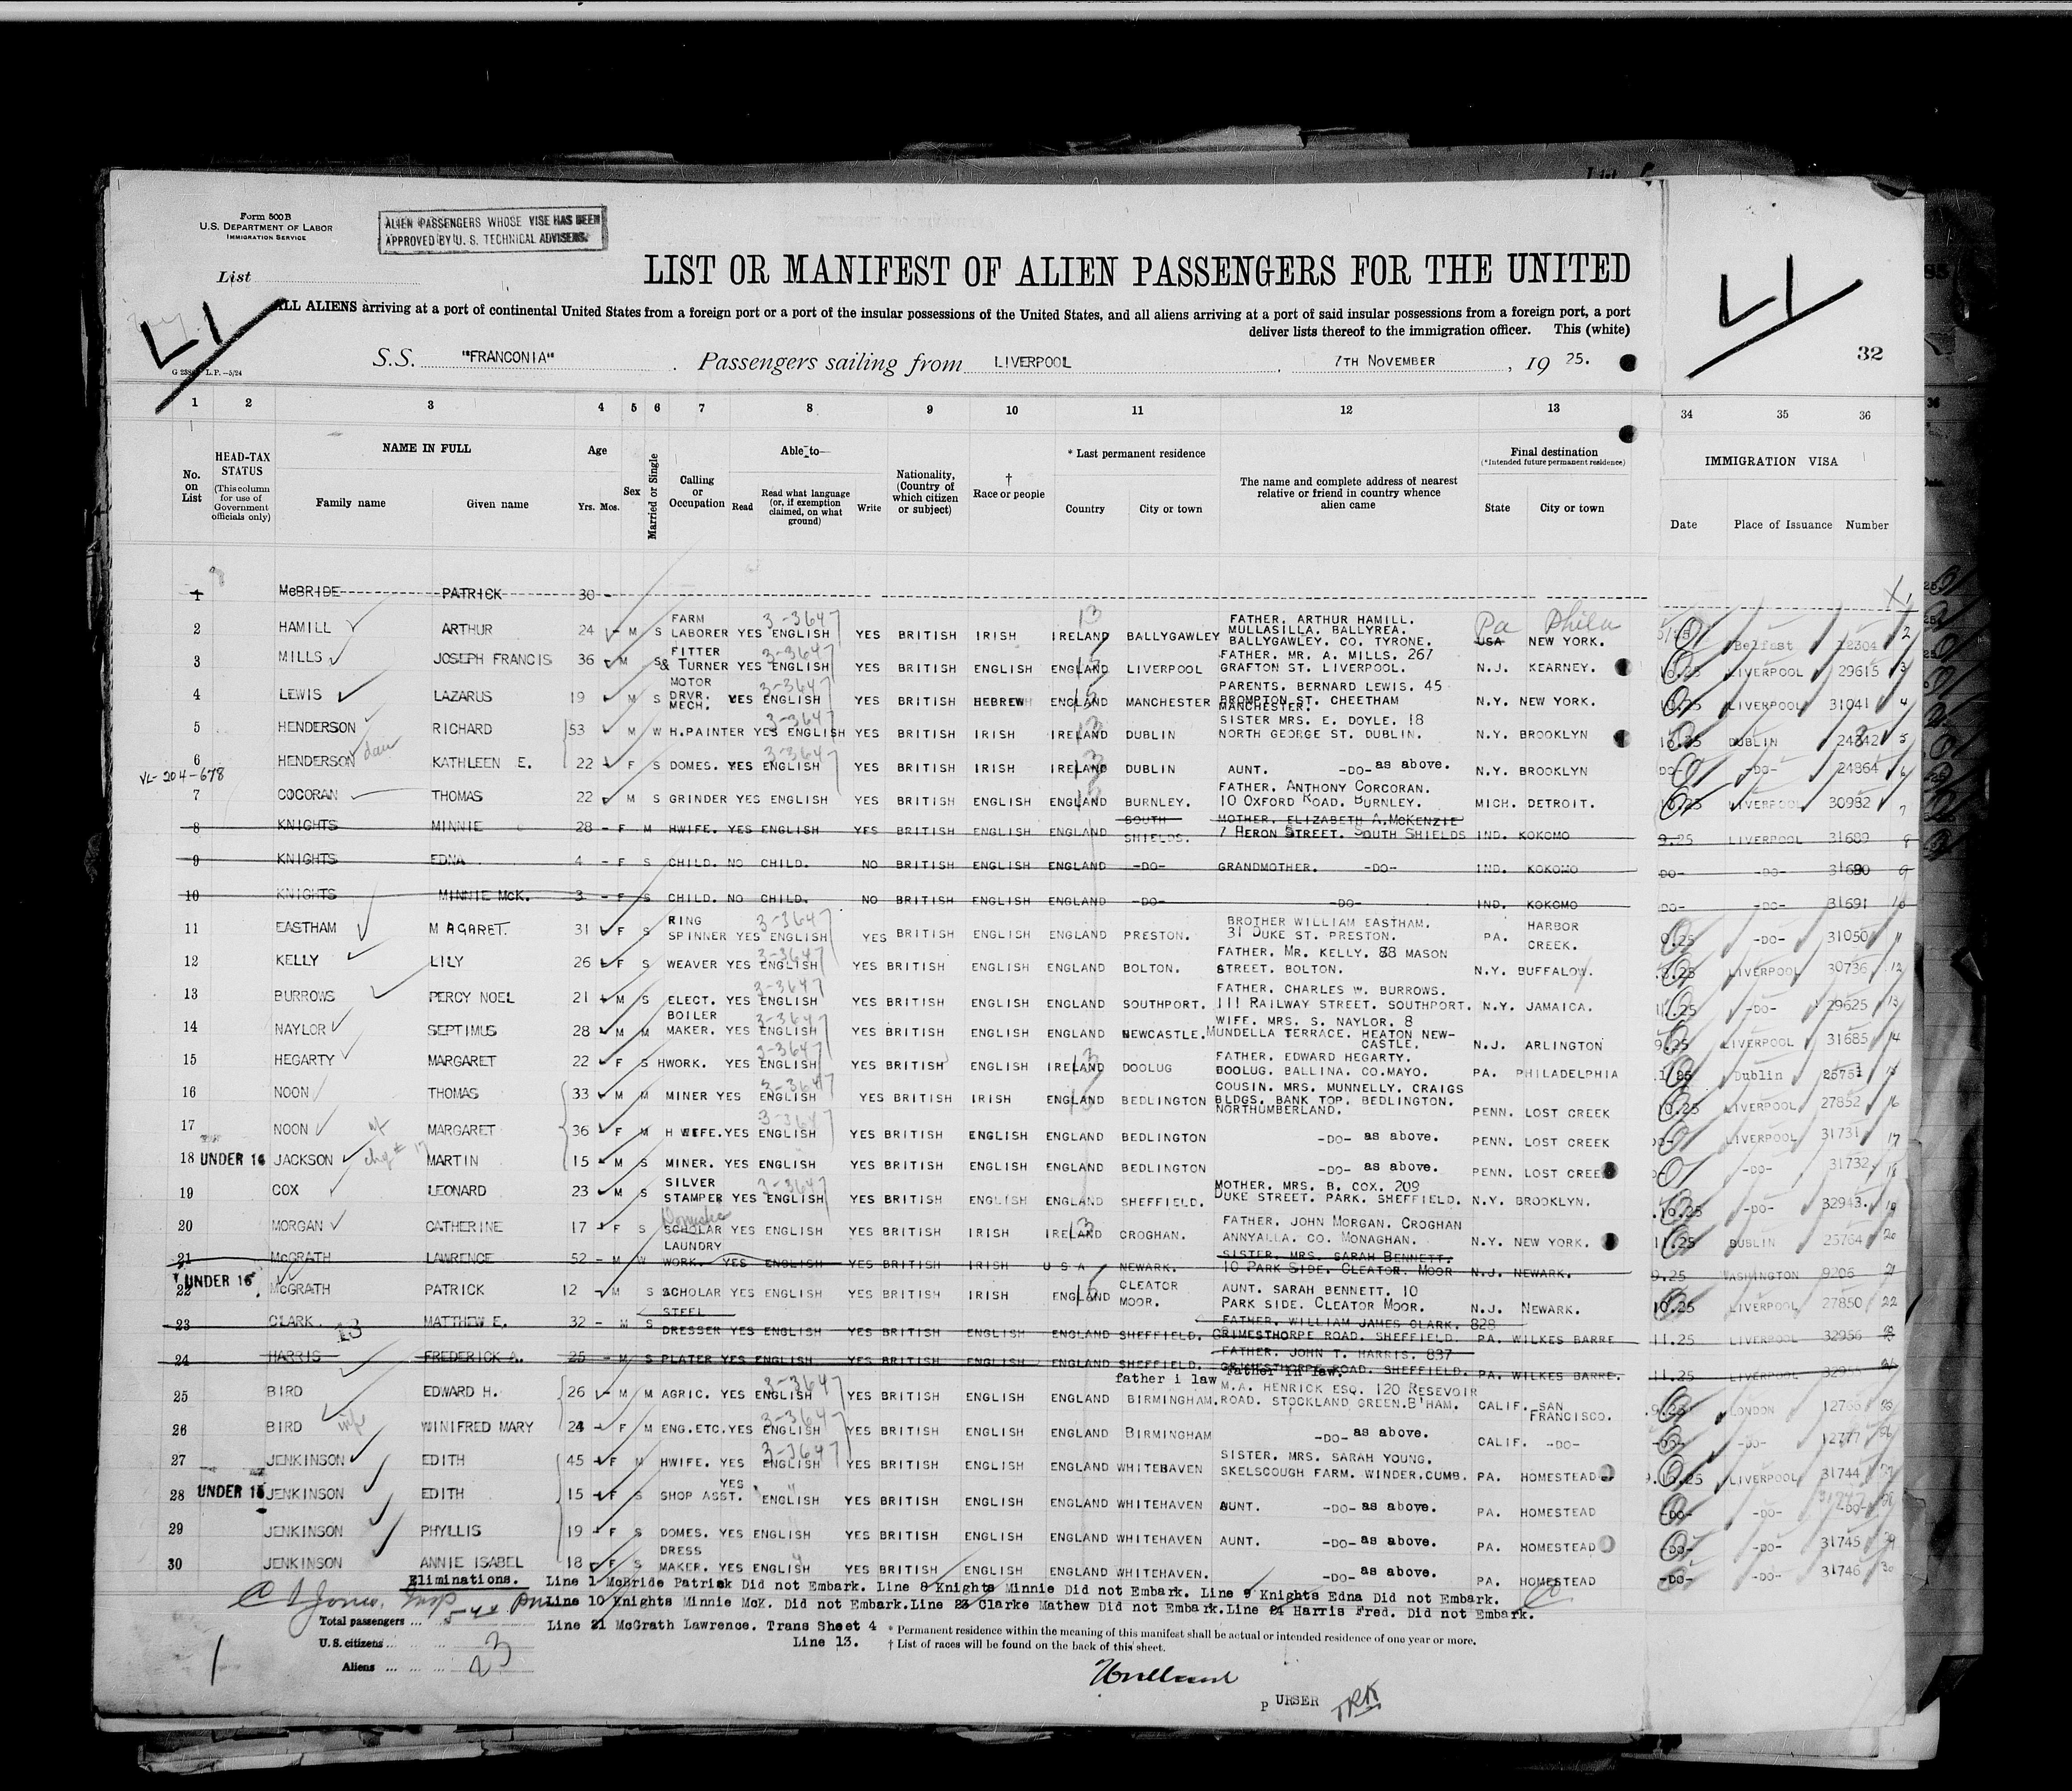 Form 500B
U.S. DEPARTMENT OF LABOR
IMMIGRATION SERVICE
ALIEN PASSENGERS WHOSE VISE HAS BEEN
APPROVED BY U. S. TECHNICAL ADVISERS.
List
LIST OR MANIFEST OF ALIEN PASSENGERS FOR THE UNITED
ALL ALIENS arriving at a port of continental United States from a foreign port or a port of the insular possessions of the United States, and all aliens arriving at a port of said insular possessions from a foreign port, a port
deliver lists thereof to the immigration officer. This (white)
S.S. "FRANCONIA" . Passengers sailing from LIVERPOOL , 7TH NOVEMBER , 19 25.
32
1 2 3 4 5 6 7 8 9 10 11 12 13 34 35 36
No. on List
HEAD-TAX STATUS (This column for use of Government officials only)
NAME IN FULL
Family name Given name
Age
Yrs. Mos.
Sex
Married or Single
Calling or Occupation
Able to—
Read Read what language (or, if exemption claimed, on what ground) Write
Nationality, (Country of which citizen or subject)
† Race or people
* Last permanent residence
Country City or town
The name and complete address of nearest relative or friend in country whence alien came
Final destination
(*Intended future permanent residence)
State City or town
IMMIGRATION VISA
Date Place of Issuance Number
1 McBRIDE PATRICK 30 -
2 HAMILL ARTHUR 24 M S FARM LABORER YES ENGLISH 3-3647 YES BRITISH IRISH IRELAND BALLYGAWLEY FATHER. ARTHUR HAMILL. MULLASILLA. BALLYREA. BALLYGAWLEY. CO. TYRONE. USA NEW YORK. Pa Phila Belfast 12304 2
3 MILLS JOSEPH FRANCIS 36 M S FITTER & TURNER YES ENGLISH 3-3647 YES BRITISH ENGLISH ENGLAND LIVERPOOL FATHER. MR. A. MILLS. 267 GRAFTON ST. LIVERPOOL. N.J. KEARNEY. 10.25 LIVERPOOL 29615 3
4 LEWIS LAZARUS 19 M S MOTOR DRVR. MECH. YES ENGLISH 3-3647 YES BRITISH HEBREW ENGLAND MANCHESTER PARENTS. BERNARD LEWIS. 45 BROMPTON ST. CHEETHAM MANCHESTER. N.Y. NEW YORK. 10.25 LIVERPOOL 31041 4
5 HENDERSON RICHARD 53 M W H.PAINTER YES ENGLISH 3-3647 YES BRITISH IRISH IRELAND DUBLIN SISTER MRS. E. DOYLE. 18 NORTH GEORGE ST. DUBLIN. N.Y. BROOKLYN 10.25 DUBLIN 5
6 HENDERSON dau KATHLEEN E. 22 F S DOMES. YES ENGLISH 3-3647 YES BRITISH IRISH IRELAND DUBLIN AUNT. -DO- as above. N.Y. BROOKLYN DO- -DO- 24864 6
VL-204-678
7 COCORAN THOMAS 22 M S GRINDER YES ENGLISH YES BRITISH ENGLISH ENGLAND BURNLEY. FATHER. ANTHONY CORCORAN. 10 OXFORD ROAD. BURNLEY. MICH. DETROIT. 10.25 LIVERPOOL 30982 7
8 KNIGHTS MINNIE 28 - F M HWIFE. YES ENGLISH YES BRITISH ENGLISH ENGLAND SOUTH SHIELDS. MOTHER. ELIZABETH A.McKENZIE 7 HERON STREET. SOUTH SHIELDS IND. KOKOMO 9.25 LIVERPOOL 31689 8
9 KNIGHTS EDNA 4 - F S CHILD. NO CHILD. NO BRITISH ENGLISH ENGLAND -DO- GRANDMOTHER. -DO- IND. KOKOMO DO- -DO- 31690 9
10 KNIGHTS MINNIE McK. 3 - F S CHILD. NO CHILD. NO BRITISH ENGLISH ENGLAND -DO- -DO- IND. KOKOMO DO- -DO- 31691 10
11 EASTHAM M AGARET. 31 F S RING SPINNER YES ENGLISH 3-3647 YES BRITISH ENGLISH ENGLAND PRESTON. BROTHER WILLIAM EASTHAM. 31 DUKE ST. PRESTON. PA. HARBOR CREEK. 9.25 -DO- 31050 11
12 KELLY LILY 26 F S WEAVER YES ENGLISH 3-3647 YES BRITISH ENGLISH ENGLAND BOLTON. FATHER. MR. KELLY. 88 MASON STREET. BOLTON. N.Y. BUFFALO. LIVERPOOL 30736 12
13 BURROWS PERCY NOEL 21 M S ELECT. YES ENGLISH 3-3647 YES BRITISH ENGLISH ENGLAND SOUTHPORT. FATHER. CHARLES W. BURROWS. 111 RAILWAY STREET. SOUTHPORT. N.Y. JAMAICA. 11.25 -DO- 29625 13
14 NAYLOR SEPTIMUS 28 M M BOILER MAKER. YES ENGLISH 3-3647 YES BRITISH ENGLISH ENGLAND NEWCASTLE. WIFE. MRS. S. NAYLOR. 8 MUNDELLA TERRACE. HEATON NEW-CASTLE. N.J. ARLINGTON 9.25 LIVERPOOL 31685 14
15 HEGARTY MARGARET 22 F S HWORK. YES ENGLISH 3-3647 YES BRITISH IRELAND DOOLUG FATHER. EDWARD HEGARTY. DOOLUG. BALLINA. CO.MAYO. PA. PHILADELPHIA Dublin 15
16 NOON THOMAS 33 M M MINER YES ENGLISH 3-3647 YES BRITISH IRISH ENGLAND BEDLINGTON COUSIN. MRS. MUNNELLY. CRAIGS BLDGS. BANK TOP. BEDLINGTON. NORTHUMBERLAND. PENN. LOST CREEK 10.25 LIVERPOOL 27852 16
17 NOON MARGARET 36 F M H WIFE. YES ENGLISH 3-3647 YES BRITISH ENGLISH ENGLAND BEDLINGTON -DO- as above. PENN. LOST CREEK DO- LIVERPOOL 31731 17
18 UNDER 16 JACKSON MARTIN 15 M S MINER. YES ENGLISH YES BRITISH ENGLISH ENGLAND BEDLINGTON -DO- as above. PENN. LOST CREEK -DO- 31732 18
19 COX LEONARD 23 M S SILVER STAMPER YES ENGLISH 3-3647 YES BRITISH ENGLISH ENGLAND SHEFFIELD. MOTHER. MRS. B. COX. 209 DUKE STREET. PARK. SHEFFIELD. N.Y. BROOKLYN. 10.25 -DO- 32943. 19
20 MORGAN CATHERINE 17 F S Domestic SCHOLAR YES ENGLISH YES BRITISH IRISH IRELAND CROGHAN. FATHER. JOHN MORGAN. CROGHAN ANNYALLA. CO. MONAGHAN. N.Y. NEW YORK. 11.25 DUBLIN 25764 20
21 McGRATH LAWRENCE 52 - M W LAUNDRY WORK. YES ENGLISH YES BRITISH IRISH U S A NEWARK. SISTER. MRS. SARAH BENNETT. 10 PARK SIDE. CLEATOR. MOOR N.J. NEWARK. 9.25 WASHINGTON 9206 21
UNDER 16
22 McGRATH PATRICK 12 M S SCHOLAR YES ENGLISH YES BRITISH IRISH ENGLAND CLEATOR MOOR. AUNT. SARAH BENNETT. 10 PARK SIDE. CLEATOR MOOR. N.J. NEWARK. 10.25 LIVERPOOL 27850 22
23 CLARK. MATTHEW E. 32 - M S STEEL DRESSER YES ENGLISH YES BRITISH ENGLISH ENGLAND SHEFFIELD. FATHER. WILLIAM JAMES CLARK. 828 GRIMESTHORPE ROAD. SHEFFIELD. PA. WILKES BARRE 11.25 LIVERPOOL 32956
24 HARRIS FREDERICK A. 25 - M S PLATER YES ENGLISH YES BRITISH ENGLISH ENGLAND SHEFFIELD. FATHER. JOHN T. HARRIS. 837 GRIMESTHORPE ROAD. SHEFFIELD. PA. WILKES BARRE. 11.25 LIVERPOOL
25 BIRD EDWARD H. 26 M M AGRIC. YES ENGLISH 3-3647 YES BRITISH ENGLISH ENGLAND BIRMINGHAM. father i law Father in law. M.A. HENRICK ESQ. 120 RESEVOIR ROAD. STOCKLAND GREEN.B'HAM. CALIF. SAN FRANCISCO. LONDON 12766 25
26 BIRD wife WINIFRED MARY 24 F M ENG.ETC. YES ENGLISH 3-3647 YES BRITISH ENGLISH ENGLAND BIRMINGHAM -DO- as above. CALIF. -DO- -DO- -DO- 12777 26
27 JENKINSON EDITH 45 F M HWIFE. YES ENGLISH 3-3647 YES BRITISH ENGLISH ENGLAND WHITEHAVEN SISTER. MRS. SARAH YOUNG. SKELSCOUGH FARM. WINDER.CUMB. PA. HOMESTEAD 10.25 LIVERPOOL 31744 27
28 UNDER 16 JENKINSON EDITH 15 F S SHOP ASST. YES ENGLISH YES BRITISH ENGLISH ENGLAND WHITEHAVEN AUNT. -DO- as above. PA. HOMESTEAD -DO- -DO- -DO- 28
29 JENKINSON PHYLLIS 19 F S DOMES. YES ENGLISH YES BRITISH ENGLISH ENGLAND WHITEHAVEN AUNT. -DO- as above. PA. HOMESTEAD -DO- -DO- 31745 29
30 JENKINSON ANNIE ISABEL 18 F S DRESS MAKER. YES ENGLISH YES BRITISH ENGLISH ENGLAND WHITEHAVEN. -DO- as above. PA. HOMESTEAD -DO- -DO- 31746 30
Eliminations. Line 1 McBride Patrick Did not Embark. Line 8 Knights Minnie Did not Embark. Line 9 Knights Edna Did not Embark.
Line 10 Knights Minnie McK. Did not Embark. Line 23 Clarke Mathew Did not Embark. Line 24 Harris Fred. Did not Embark.
Line 21 McGrath Lawrence. Trans Sheet 4
Line 13.
Total passengers ...
U.S. citizens ...
Aliens ... 23
* Permanent residence within the meaning of this manifest shall be actual or intended residence of one year or more.
† List of races will be found on the back of this sheet.
P URSER